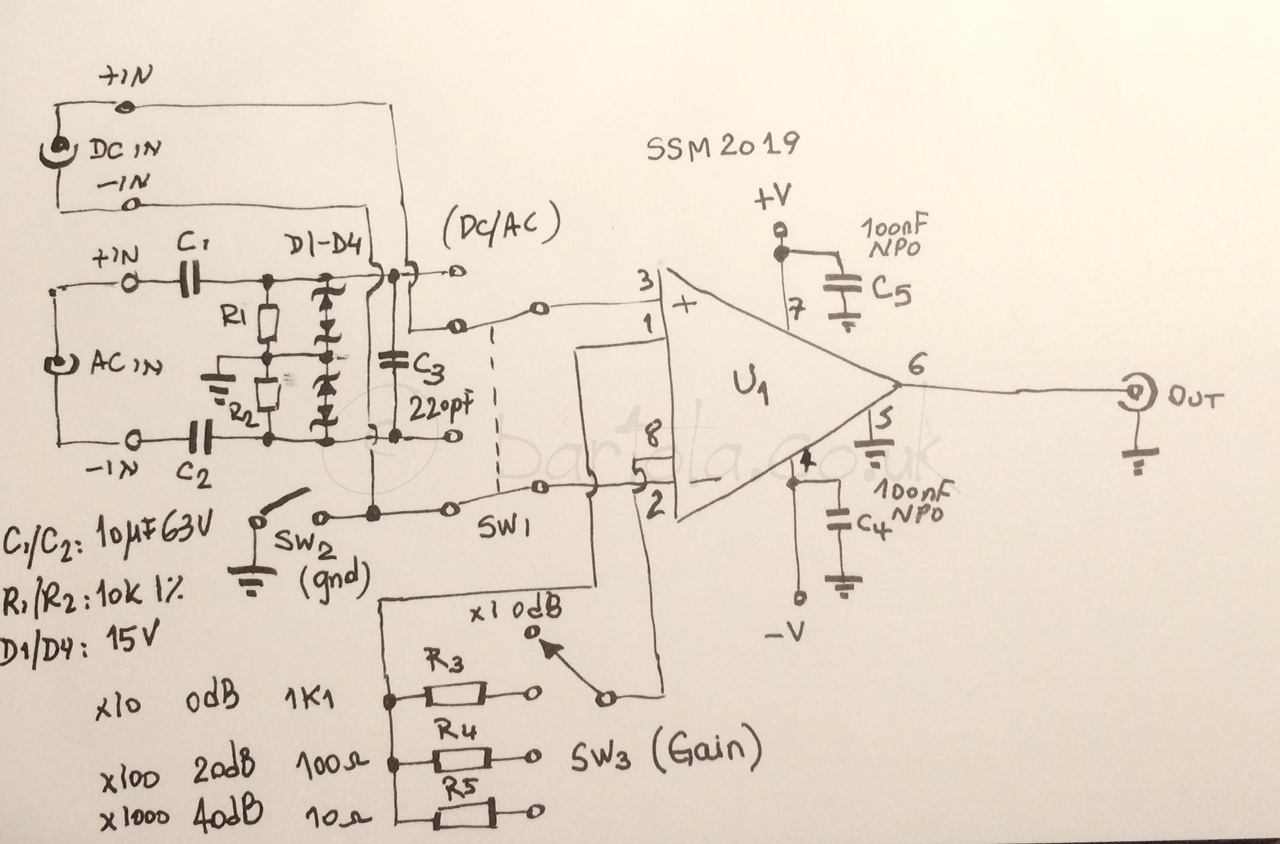 +IN
DC IN
-IN
SSM2019
+V
(DC/AC)
100nF
NPO
C5
+IN
C1
D1-D4
3
+
1
7
R1
AC IN
C3
220pF
U1
6
OUT
R2
5
8
-IN
C2
Bartola.co.uk
4
2
-
100nF
NPO
C4
C1/C2: 10µF 63V
SW2
(gnd)
SW1
R1/R2: 10K 1%
D1/D4: 15V
x1 0dB
-V
R3
x10 0dB 1K1
R4
SW3 (Gain)
x100 20dB 100Ω
R5
x1000 40dB 10Ω